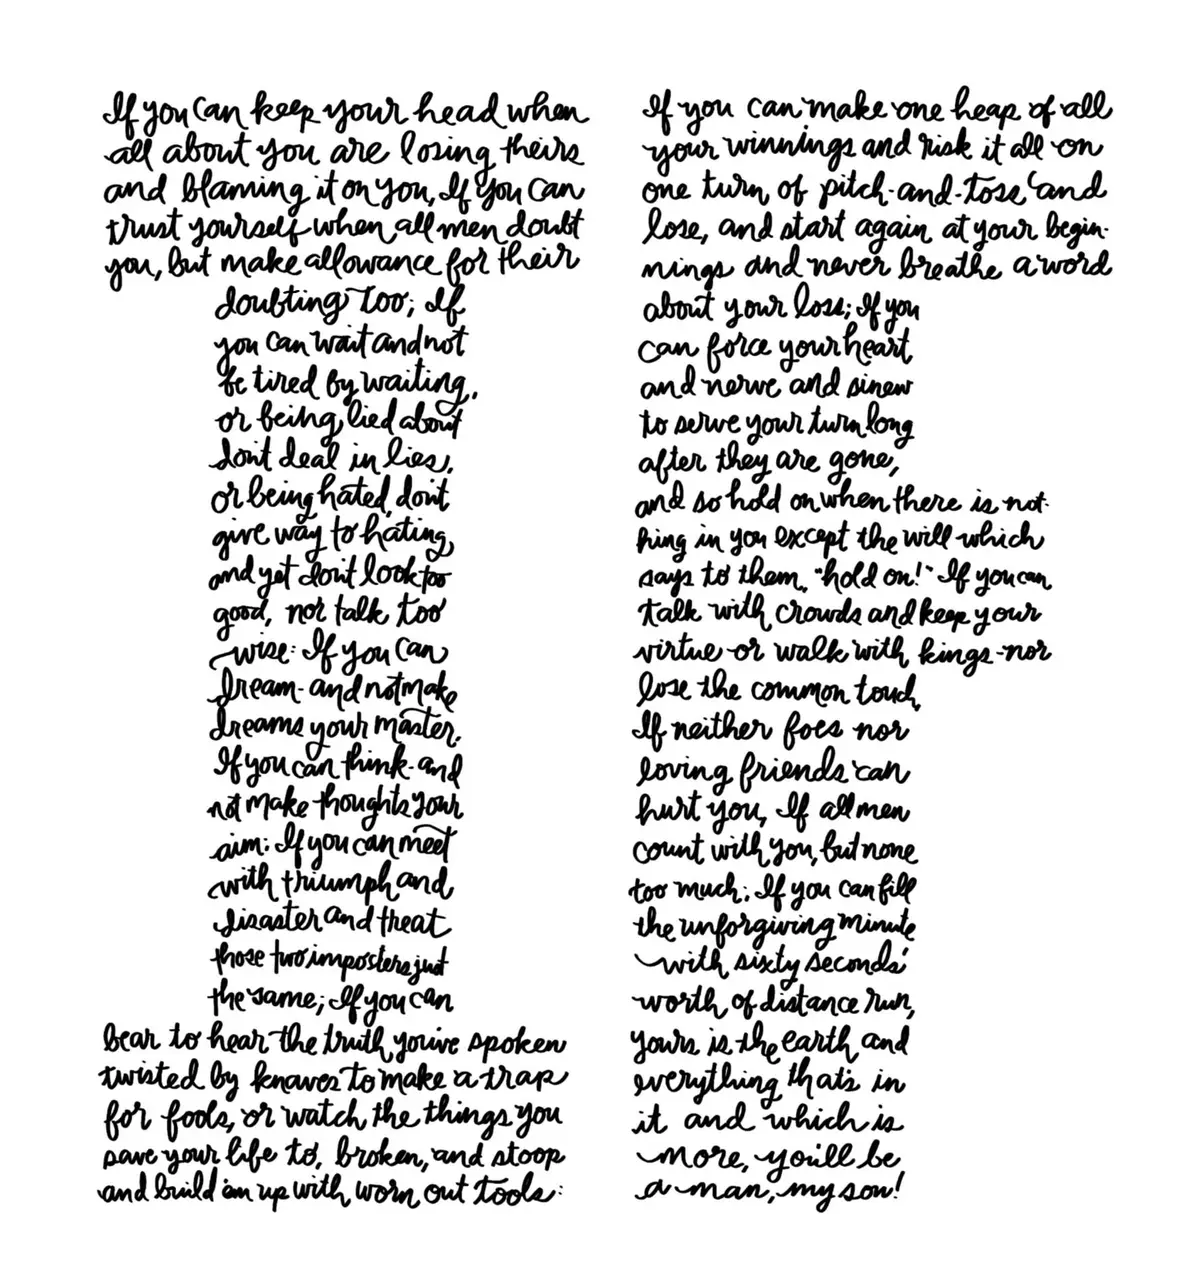 If you can keep your head when
all about you are losing theirs
and blaming it on you, If you can
trust yourself when all men doubt
you, but make allowance for their
doubting too; If
you can wait and not
be tired by waiting,
or being lied about
don't deal in lies,
or being hated, don't
give way to hating,
and yet don't look too
good, nor talk too
wise: If you can
dream- and not make
dreams your master;
If you can think- and
not make thoughts your
aim; If you can meet
with triumph and
disaster and treat
those two imposters just
the same; If you can
bear to hear the truth you've spoken
twisted by knaves to make a trap
for fools, or watch the things you
gave your life to, broken, and stoop
and build 'em up with worn out tools:
If you can make one heap of all
your winnings and risk it all on
one turn of pitch-and-toss, and
lose, and start again at your begin-
nings and never breathe a word
about your loss; If you
can force your heart
and nerve and sinew
to serve your turn long
after they are gone,
and so hold on when there is not-
hing in you except the will which
says to them, "hold on!" If you can
talk with crowds and keep your
virtue or walk with kings-nor
lose the common touch,
If neither foes nor
loving friends can
hurt you, If all men
count with you, but none
too much; If you can fill
the unforgiving minute
with sixty seconds'
worth of distance run,
yours is the earth and
everything that's in
it and which is
more, you'll be
a man, my son!